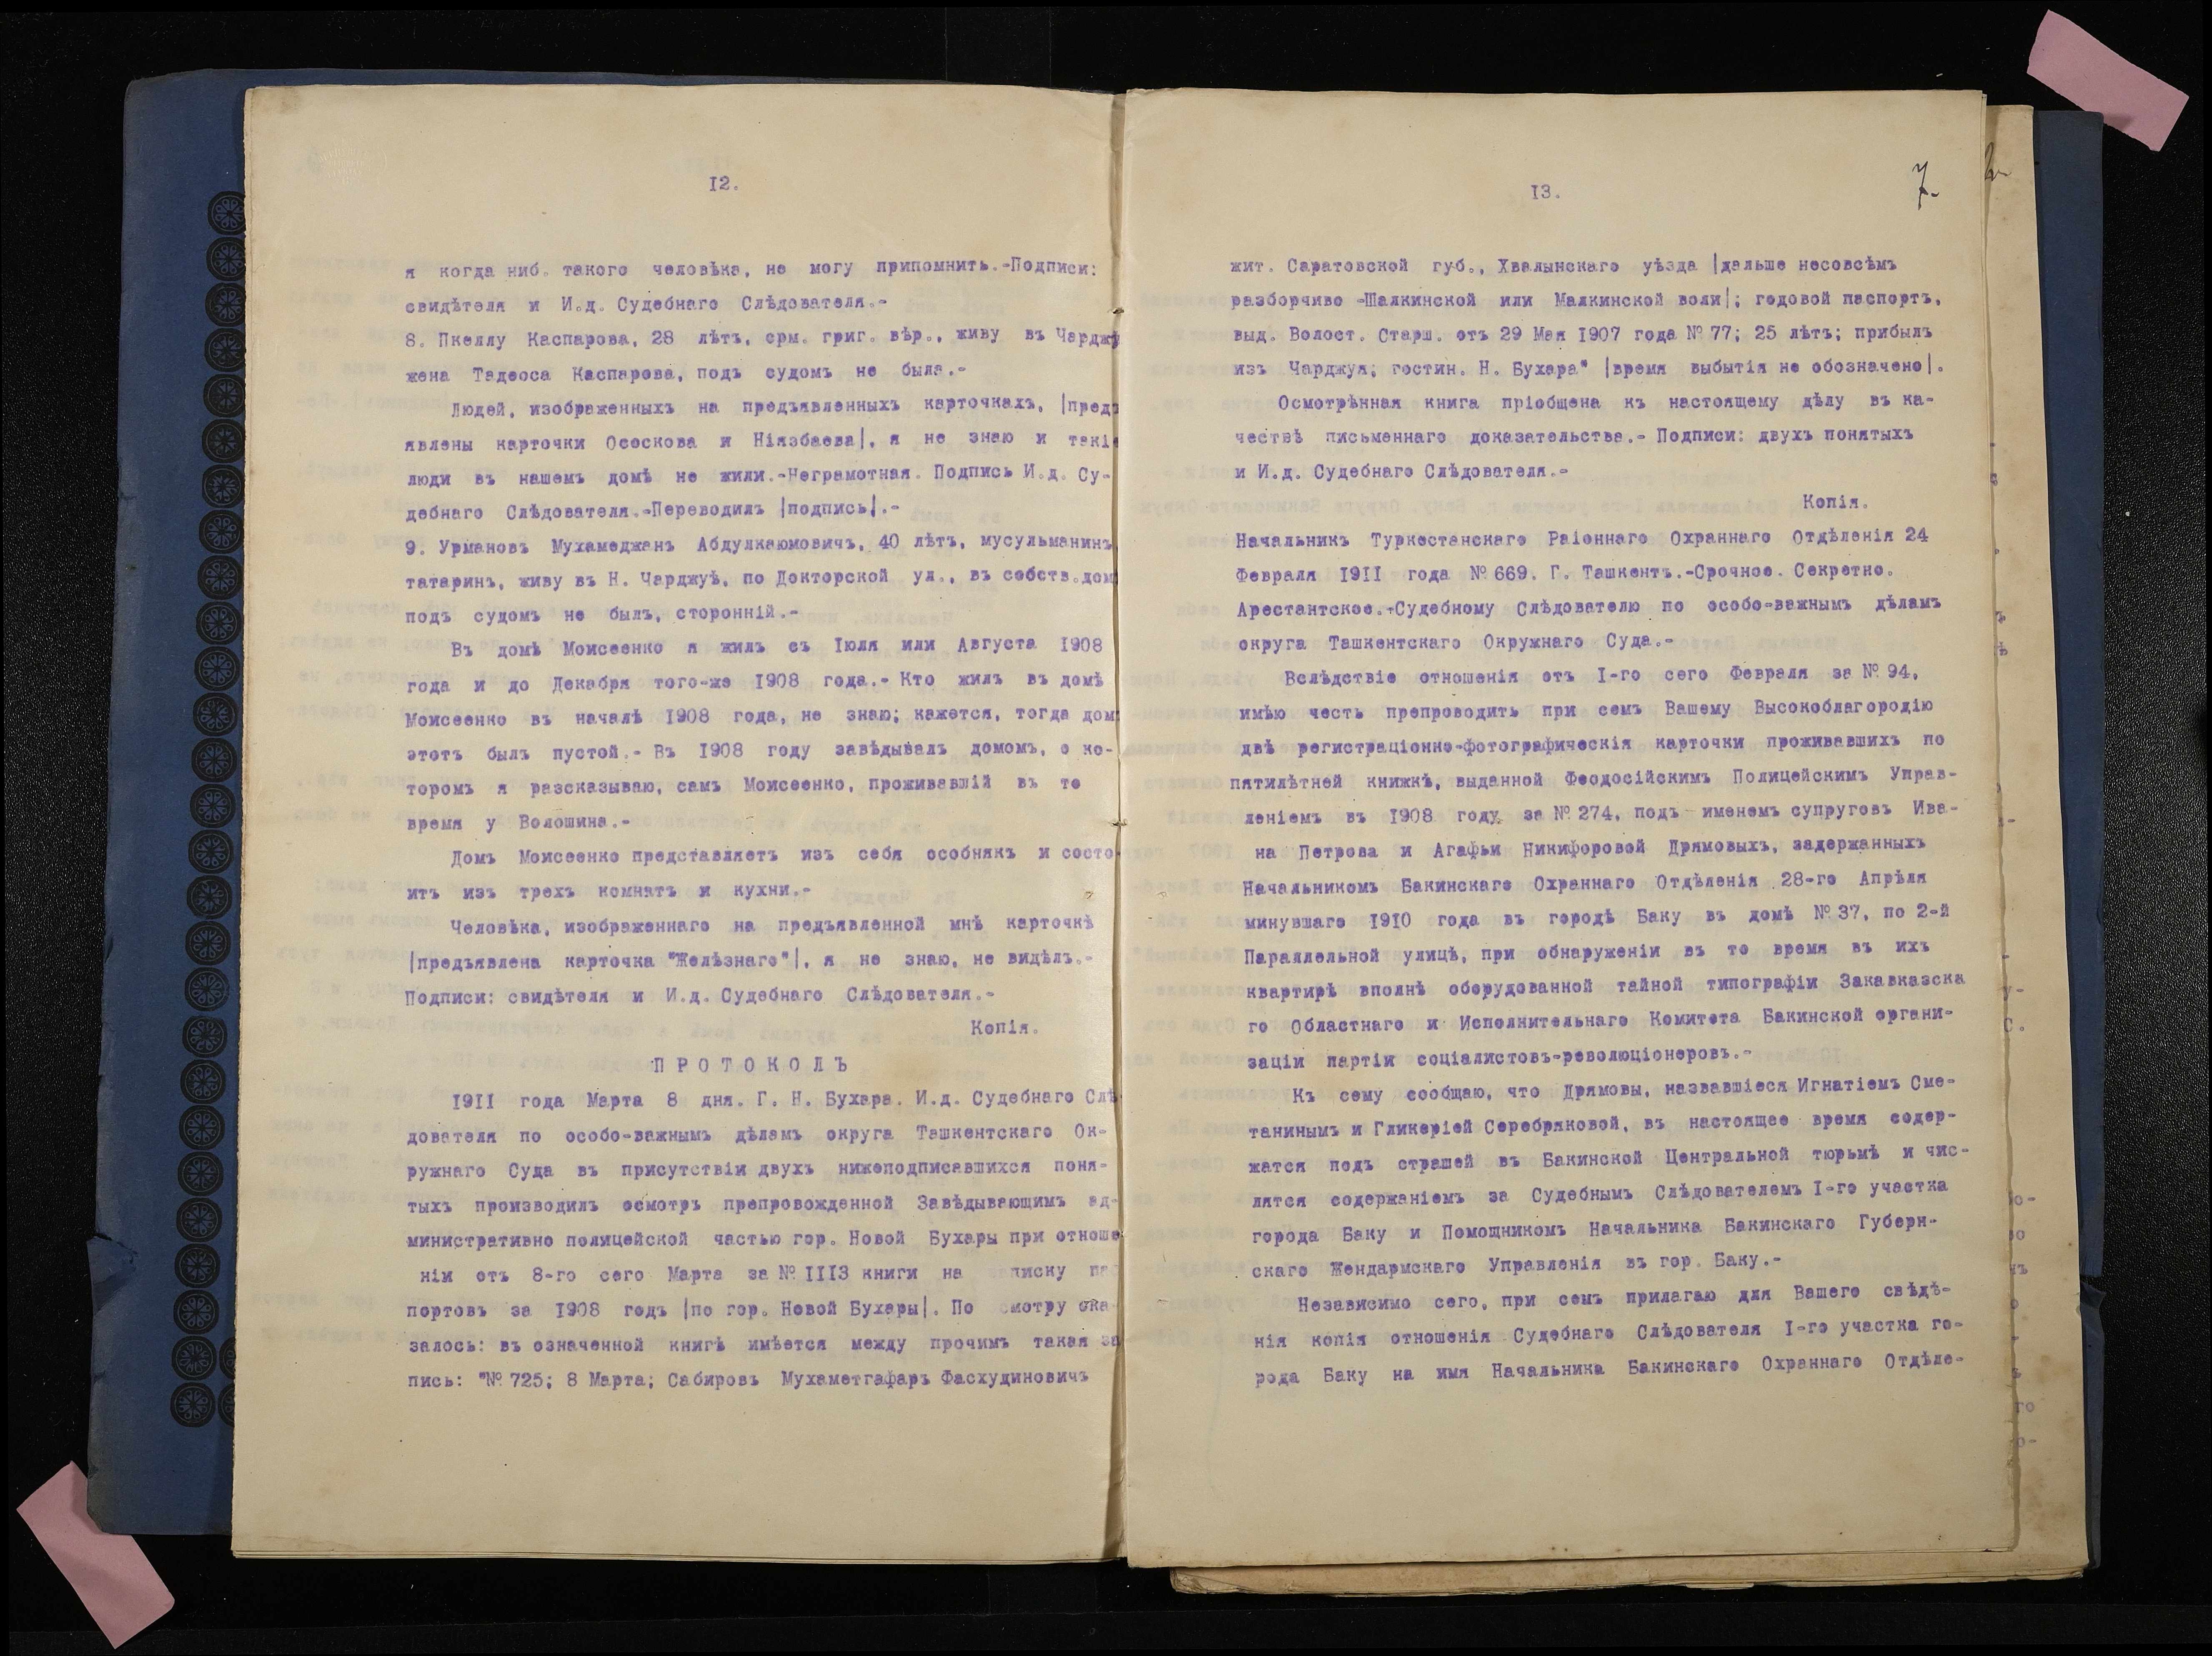 12.
я когда ниб. такого человѣка, не могу припомнить.-Подписи:
свидѣтеля и И.д. Судебнаго Слѣдователя.-
8. Пкеллу Каспарова, 28 лѣтъ, срм. григ. вѣр., живу въ Чарджу
жена Тадеоса Каспарова, подъ судомъ не была.-
Людей, изображенныхъ на предъявленныхъ карточкахъ, |предъ
явлены карточки Ососкова и Ніязбаева|, я не знаю и такіе
люди въ нашемъ домѣ не жили.-Неграмотная. Подпись И.д. Су-
дебнаго Слѣдователя.-Переводилъ |подпись|.-
9. Урмановъ Мухамеджанъ Абдулкаюмовичъ, 40 лѣтъ, мусульманинъ
татаринъ, живу въ Н. Чарджуѣ, по Докторской ул., въ собств.дом
подъ судомъ не былъ, сторонній.-
Въ домѣ Моисеенко я жилъ съ Іюля или Августа 1908
года и до Декабря того-же 1908 года.- Кто жилъ въ домѣ
Моисеенко въ началѣ 1908 года, не знаю; кажется, тогда дом
этотъ былъ пустой.- Въ 1908 году завѣдывалъ домомъ, о ко-
торомъ я разсказываю, самъ Моисеенко, проживавшій въ то
время у Волошина.-
Домъ Моисеенко представляетъ изъ себя особнякъ и состо
итъ изъ трехъ комнатъ и кухни.-
Человѣка, изображеннаго на предъявленной мнѣ карточкѣ
|предъявлена карточка "Желѣзнаго"|, я не знаю, не видѣлъ.-
Подписи: свидѣтеля и И.д. Судебнаго Слѣдователя.-
Копія.
ПРОТОКОЛЪ
1911 года Марта 8 дня. Г. Н. Бухара. И.д. Судебнаго Слѣ
дователя по особо-важнымъ дѣламъ округа Ташкентскаго Ок-
ружнаго Суда въ присутствіи двухъ нижеподписавшихся поня-
тыхъ производилъ осмотръ препровожденной Завѣдывающимъ ад-
министративно полицейской частью гор. Новой Бухары при отноше
ніи отъ 8-го сего Марта за № 1113 книги на писку па
портовъ за 1908 годъ |по гор. Новой Бухары|. По смотру ока
залось: въ означенной книгѣ имѣется между прочимъ такая за
пись: "№ 725; 8 Марта; Сабировъ Мухаметгафаръ Фасхудиновичъ
13.
7.
жит. Саратовской губ., Хвалынскаго уѣзда |дальше несовсѣмъ
разборчиво -Шалкинской или Малкинской воли|; годовой паспортъ,
выд. Волост. Старш. отъ 29 Мая 1907 года № 77; 25 лѣтъ; прибылъ
изъ Чарджуя; гостин. Н. Бухара" |время выбытія не обозначено|.
Осмотрѣнная книга пріобщена къ настоящему дѣлу въ ка-
чествѣ письменнаго доказательства.- Подписи: двухъ понятыхъ
и И.д. Судебнаго Слѣдователя.-
Копія.
Начальникъ Туркестанскаго Раіоннаго Охраннаго Отдѣленія 24
Февраля 1911 года № 669. Г. Ташкентъ.-Срочное. Секретно.
Арестантское.-Судебному Слѣдователю по особо-важнымъ дѣламъ
округа Ташкентскаго Окружнаго Суда.-
Вслѣдствіе отношенія отъ I-го сего Февраля за № 94,
имѣю честь препроводить при семъ Вашему Высокоблагородію
двѣ регистраціонно-фотографическія карточки проживавшихъ по
пятилѣтней книжкѣ, выданной Феодосійскимъ Полицейскимъ Управ-
леніемъ въ 1908 году за № 274, подъ именемъ супруговъ Ива-
на Петрова и Агафьи Никифоровой Дрямовыхъ, задержанныхъ
Начальникомъ Бакинскаго Охраннаго Отдѣленія 28-го Апрѣля
минувшаго 1910 года въ городѣ Баку въ домѣ № 37, по 2-й
Параллельной улицѣ, при обнаруженіи въ то время въ ихъ
квартирѣ вполнѣ оборудованной тайной типографіи Закавказска
го Областнаго и Исполнительнаго Комитета Бакинской органи-
заціи партіи соціалистовъ-революціонеровъ.-
Къ сему сообщаю, что Дрямовы, назвавшіеся Игнатіемъ Сме-
танинымъ и Гликеріей Серебряковой, въ настоящее время содер-
жатся подъ стражей въ Бакинской Центральной тюрьмѣ и чис-
лятся содержаніемъ за Судебнымъ Слѣдователемъ I-го участка
города Баку и Помощникомъ Начальника Бакинскаго Губерн-
скаго Жендармскаго Управленія въ гор. Баку.-
Независимо сего, при семъ прилагаю для Вашего свѣдѣ-
нія копія отношенія Судебнаго Слѣдователя I-го участка го-
рода Баку на имя Начальника Бакинскаго Охраннаго Отдѣле-